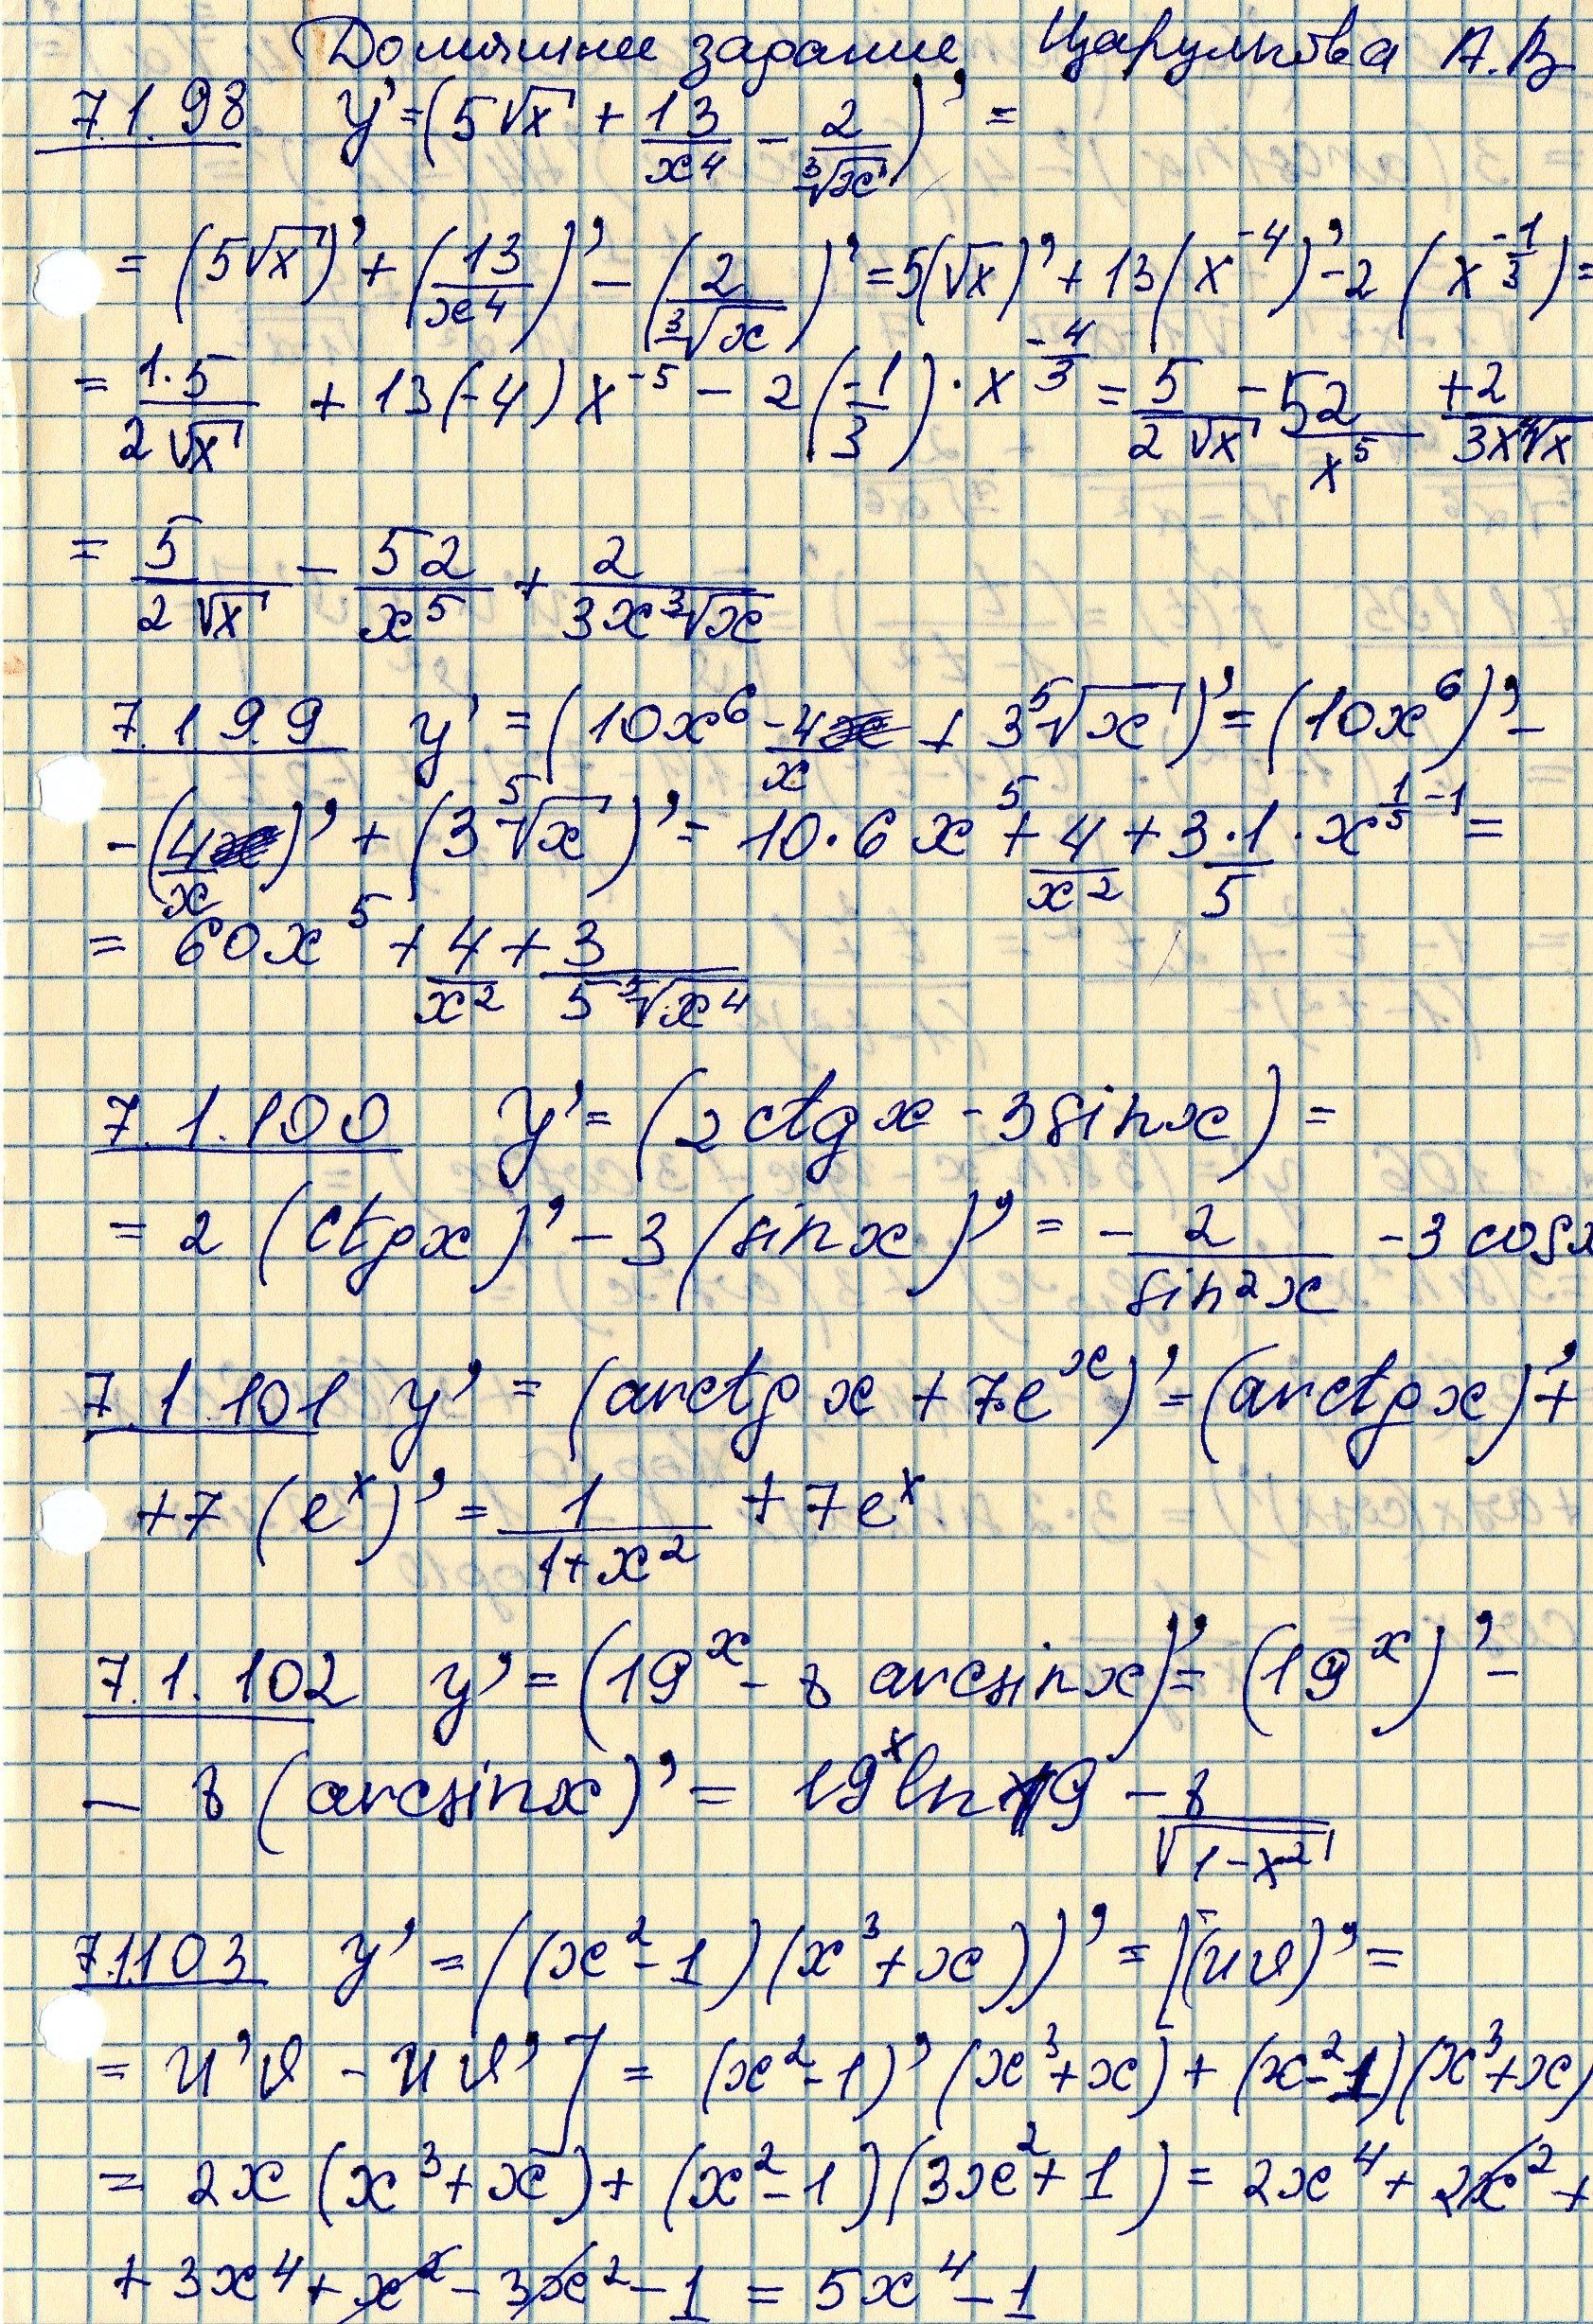 Домашнее задание Царулкова А.В
7.1.98 y' = (5√x + 13/x⁴ - 2/∛x)' =
= (5√x)' + (13/x⁴)' - (2/∛x)' = 5(√x)' + 13(x⁻⁴)' - 2(x^(-1/3)) =
= 1·5/(2√x) + 13(-4)x⁻⁵ - 2(-1/3)·x^(-4/3) = 5/(2√x) - 52/x⁵ + 2/(3x∛x)
= 5/(2√x) - 52/x⁵ + 2/(3x∛x)
7.1.99 y' = (10x⁶ - 4/x + 3⁵√x)' = (10x⁶)' -
- (4/x)' + (3⁵√x)' = 10·6x⁵ + 4/x² + 3·1/5·x^(1/5-1) =
= 60x⁵ + 4/x² + 3/(5⁵√x⁴)
7.1.100 y' = (2ctgx - 3sinx) =
= 2(ctgx)' - 3(sinx)' = -2/sin²x - 3cosx
7.1.101 y' = (arctgx + 7e^x)' = (arctgx)' +
+ 7(e^x)' = 1/(1+x²) + 7e^x
7.1.102 y' = (19^x - 8arcsinx)' = (19^x)' -
- 8(arcsinx)' = 19^x ln19 - 8/√(1-x²)
7.1.103 y' = ((x²-1)(x³+x))' = [(uv)' =
= u'v - uv'] = (x²-1)'(x³+x) + (x²-1)(x³+x)
= 2x(x³+x) + (x²-1)(3x²+1) = 2x⁴ + 2x² +
+ 3x⁴ + x² - 3x² - 1 = 5x⁴ - 1